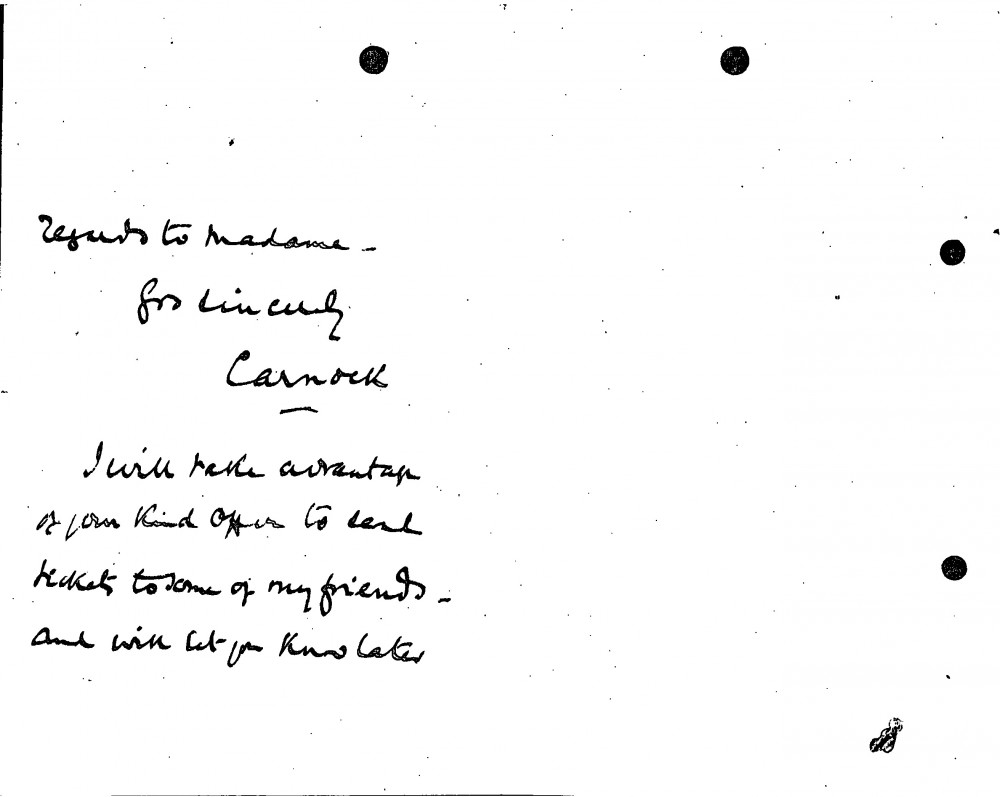 regards to Madame –
Yrs sincerely
Carnock
I will take advantage
of your kind offer to send
tickets to some of my friends –
and will let you know later